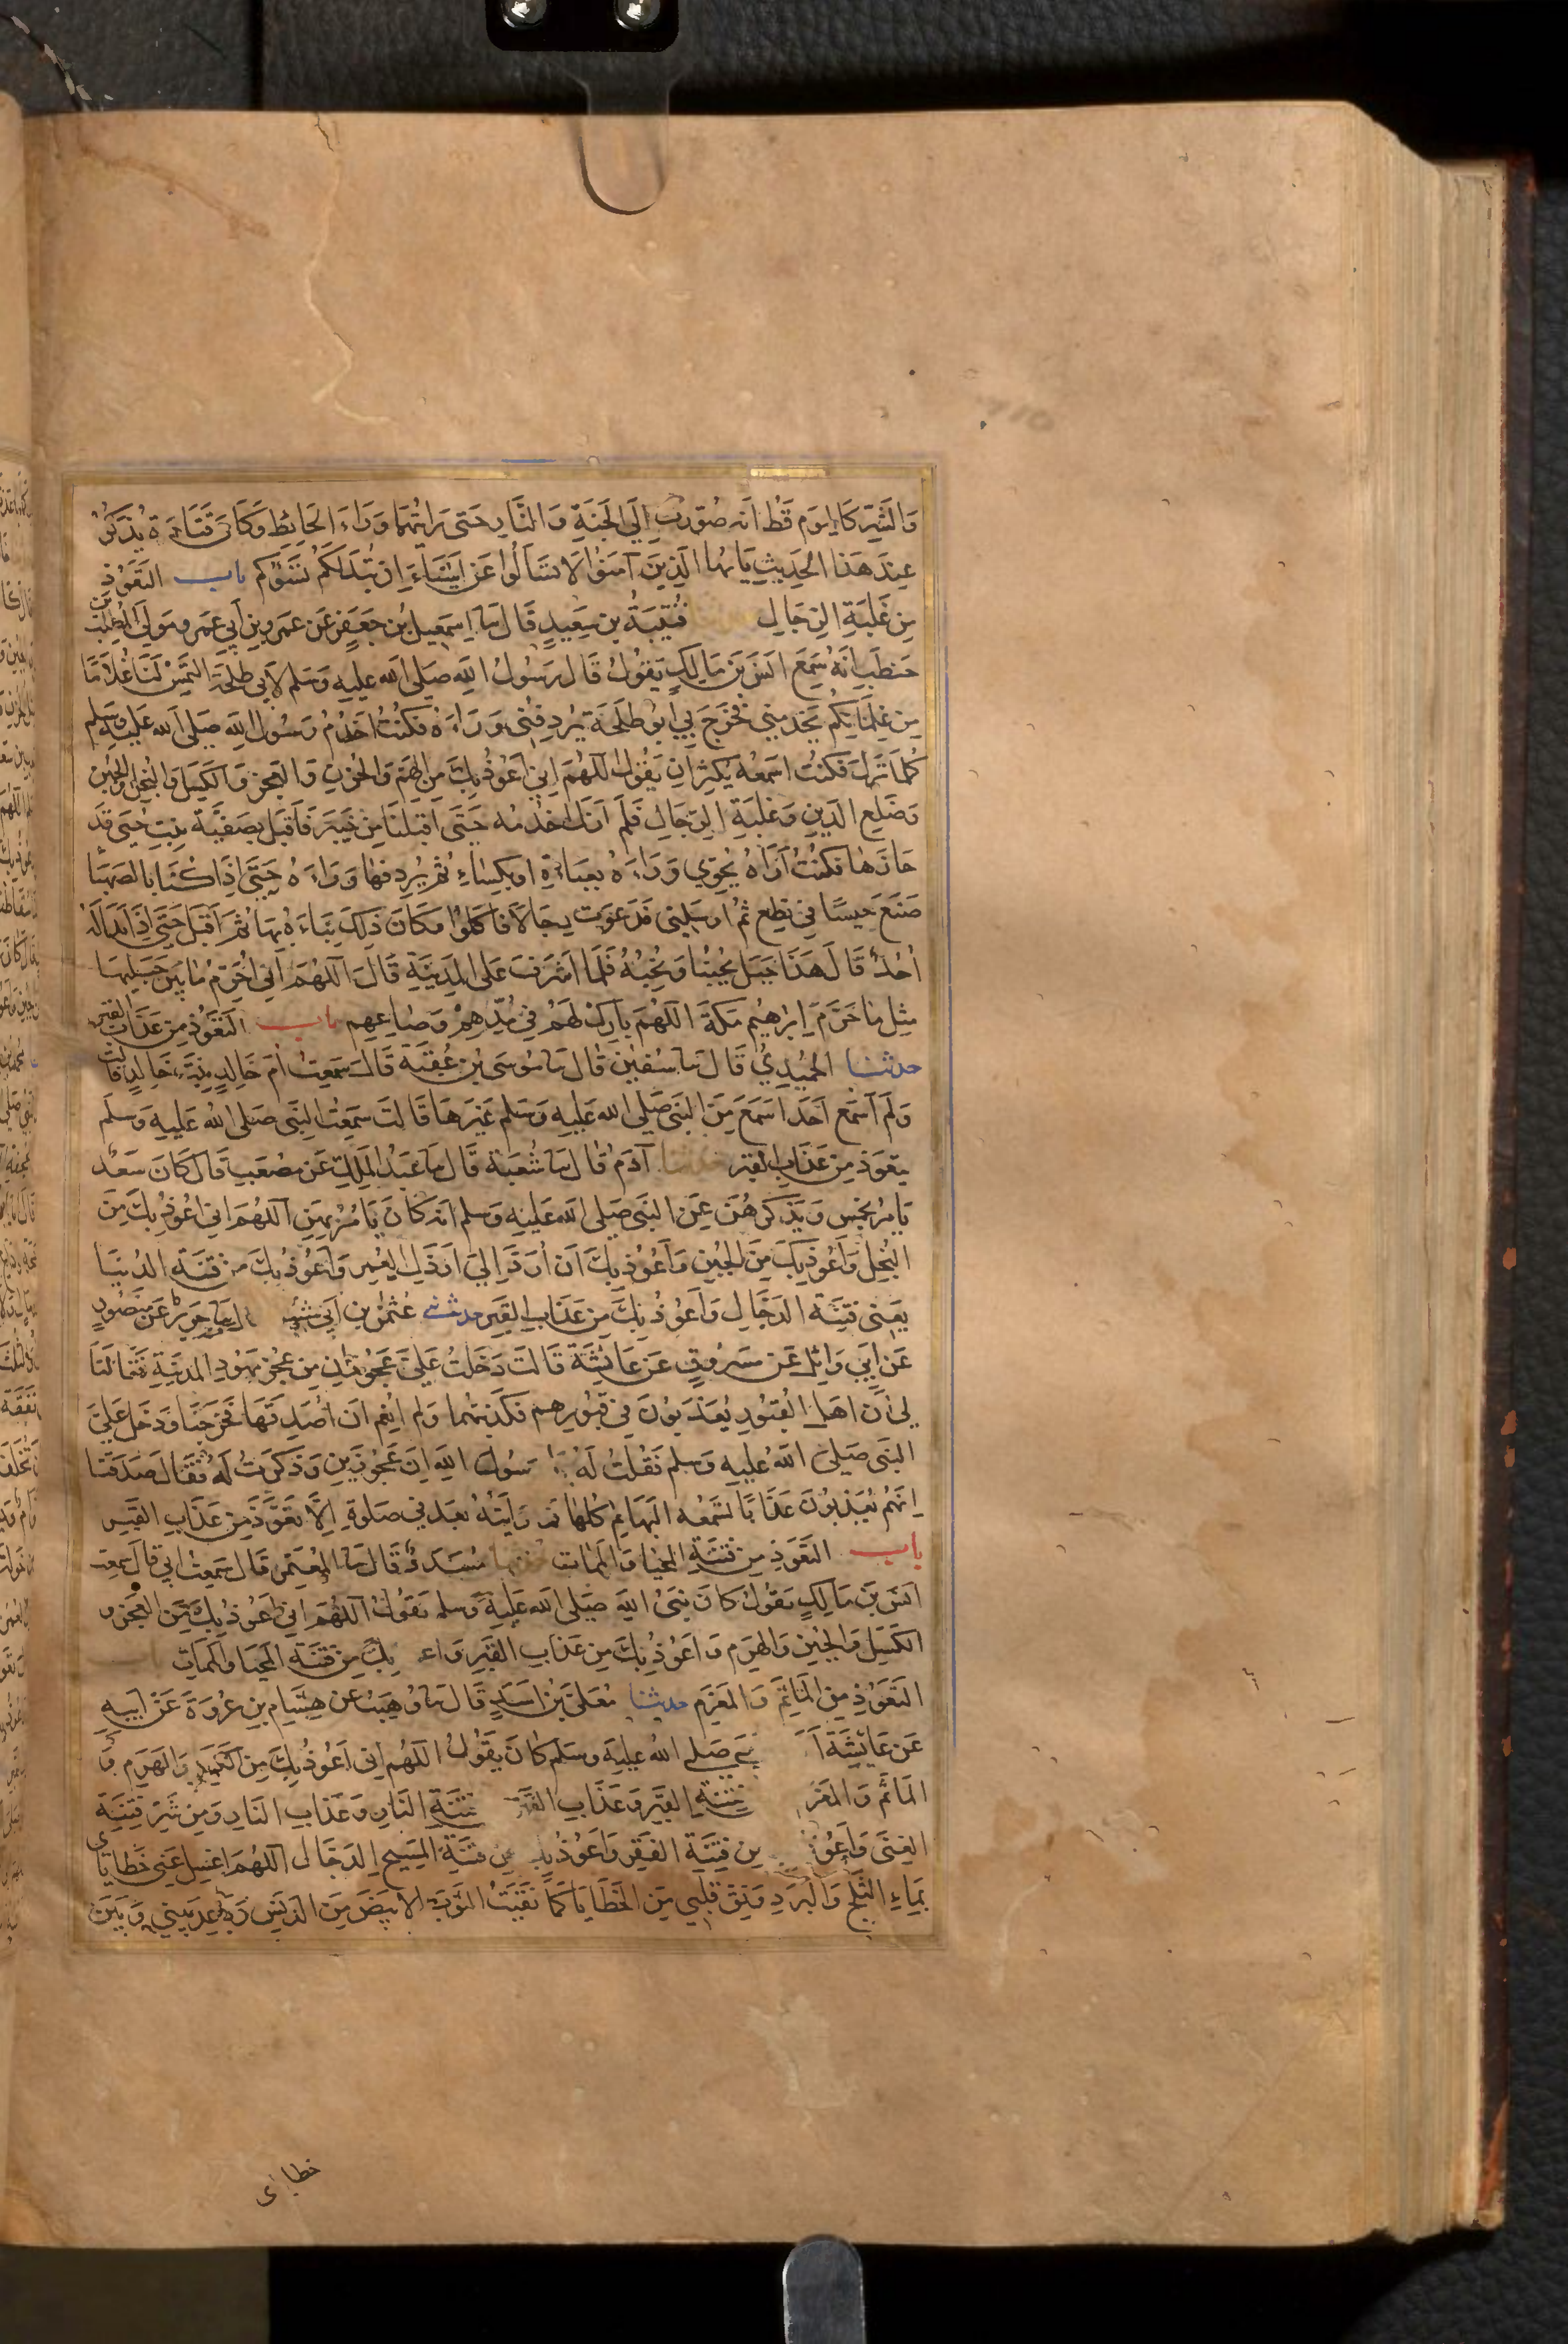 وَالشَّرِّ كَاليَوم قَطُ انه صُوِّرت اِلَى الجَنَةِ وَالنَّارِ حَتى رَايتُهُمَا وَرَاءَ الحَائِطِ وَكَانَ قَتَادَة يُذكَرُ
عِندَ هَذا الحَدِيثِ يَا يُّها الذِينَ آمَنوُا لَا تَسَألُوا عَن اَشيَاءَ اِن تُبدَ لَكمُ تَسُؤكم باب التَعَوّذ
مِن غَلَبَةِ الرِجَالِ قُتَيبَةُ بن سَعِيدٍ قَال نا اِسمَعيل بن جَعفَر عَن عَمَرو بنِ اَبي عَمَرو مَولَى المُطّلِب بن
حَنطَبٍ انهُ سَمِعَ اَنسَ بنَ مَالِكٍ يَقوُل قَالَ رَسُولُ اللهِ صَلى الله عَليهِ وَسَلم لاَبي طَلحَةَ التَمِسْ لَنَا غُلاَمًا
مِن غِلمَانِكُم يَخدمني فَخرَج بِي اَبُو طَلحَة يُردِفُني وَرَاءهُ فكنتُ اخدُمُ رَسُول اللهِ صَلى الله عَليهِ وسَلم
كُلمَا نَزل فكنتُ اسمَعُهُ يكثِرُ اَن يَقول اللهُمَ اِني اَعُوذُ بِكَ مِن الهَم وَالحُزنِ وَالعَجزِ وَالكَسَلِ وَالبُخلِ وَالجُبن
وَضَلَعِ الدَينِ وَغَلَبَةِ الرِجَالِ فَلَم اَزَل اخدُمُه حَتَّى اَقبَلنا مِن خَيبَر فَاَقبَل بِصَفيَّة بِنتِ حُيَى قد
حَازَهَا فكنتُ اَرَاهُ يُحَوّي وَرَاءَهُ بِعَبَاءَةٍ او بِكِسَاءٍ ثُمَ يُردِفهَا وَرَاءَهُ حَتَّى اِذَا كُنّا بالصَهبَا
صَنَعَ حَيسًا فِي نِطَعٍ ثُمّ اَرسَلَني فَدَعَوت رِجَالا فاَ كَلوُا وَكَانَ ذَلكَ بِنَاءَهُ بهَا ثُمَّ اَقبَل حَتَّى اِذَا بَدَا لَهُ
اُحُدٌ قَالَ هَذَا جَبَل يُحِبّنا وَنُحِبُّهُ فَلَمّا اَشرَفَ عَلى المَدِينَةِ قَالَ اللّهُمَّ اِنّي اُحَرّمُ مَا بَين جَبَلَيهَا
مِثلَ مَا حَرَّمَ اِبرَاهِيمُ مَكّةَ اللّهُمَّ بَارِك لَهُم فِي مُدِّهِم وَصَاعِهِم باب التَعَوّذِ مِن عَذَابِ القَبر
حدثنا الحُمَيدِيُّ قَالَ نا سُفين قَالَ نا مُوسَى بن عُقبَةَ قَالَ سَمِعتُ اُمَ خَالِدٍ بنتَ خَالدٍ قالت
وَلَم اَسمَع اَحَدا سَمِعَ مِنَ النَبيِّ صَلَى الله عَليهِ وَسَلم غَيرَهَا قَالَت سَمِعتُ النَّبيَ صَلى اللهُ عَلَيهِ وَسَلَم
يتعَوذ مِن عَذَابِ القَبر حدثنا آدَمُ قَالَ نا شُعبَة قَالَ نا عَبدُ المَلِك عَن مُصعَبٍ قَالَ كَانَ سَعدٌ
يَامُر بخَمسٍ وَيَذكرُهُنّ عَن النَبي صَلى الله عَليهِ وَسَلم انهُ كَانَ يَامُرُ بهِن اللهُمَ اني اعُوذُ بِكَ مِن
البُخلِ وَاَعُوذ بِكَ مِن الجُبن وَاَعُوذ بِكَ اَن اُرَدّ اِلَى اَرذَل العُمر وَاَعُوذ بِكَ مِن فِتنَةِ الدُنيَا
يَعنى فِتنَة الدَجَّالِ وَاَعُوذُ بِكَ مِن عَذَابِ القَبر حدثنا عُثمٰن بن اَبي شَيبه نا جَرير عَن مَنصُورٍ
عَن اَبي وَائِل عَن مَسرُوق عَن عَائِشَةَ قَالَت دَخَلَتُ عَلَيَّ عَجُوزَانِ مِن عُجُزِ يَهُودِ المَدِينَةِ فَقَالَتَا
لي اَنّ اَهل القُبُورِ يُعَذبونَ فِي قبُورِهِم فكَذّبتُهُما وَلم اُنعِم اَن اُصَدِّقهَا فَخَرجَتَا وَدَخَل عَليَّ
النَبي صَلى اللهُ عَليهِ وَسلم فَقُلتُ لَهُ يا رَسُولَ اللهِ اِنّ عَجُوزَينِ وَذَكَرتُ لَهُ فقَالَ صَدَقَتَا
اِنهُم يُعَذَبُونَ عَذَابًا تَسمَعُه البَهَايِم كُلهَا فما رَاَيتُهُ بَعد فِي صَلوةٍ اِلَّا تعَوَّذَ مِن عَذَابِ القَبر
باب التَعَوذِ مِن فِتنَةِ المَحيَا وَالمَمَاتِ حدثنا مُسَدّدٌ قَالَ نا المُعتَمر قَالَ سَمعتُ اَبي قَالَ سَمعت
اَنسَ بنَ مَالِكٍ يَقُولُ كَانَ نَبيُّ اللهِ صَلى الله عَلَيهِ وَسلم يَقولُ اللّهُمَّ اِني اعُوذ بكَ مِن العَجز و
الكَسَلِ وَالجُبنِ وَالهَرَمِ وَاَعُوذُ بِكَ مِن عَذَابِ القَبر وَاعـ بِكَ مِن فِتنَةِ المَحيَا وَالمَمَات باب
التَعَوذِ مِن المَاثَمِ وَالمَغرَمِ حدثنا مُعَلَّى بن اَسَدٍ قَالَ نا وُهَيبٌ عَن هِشَامِ بنِ عُروَةَ عَن اَبيهِ
عَن عَائِشَةَ اَ بيَّ صَلى اللهُ عَليهِ وَسَلم كَانَ يقَوُلُ اللهُم اِني اَعُوذ بِكَ مِن الكَسَلِ وَالهَرَمِ وَ
المَاثَمِ وَالمَغر فِتنَةِ القَبر وَعَذَابِ القَبر فِتنَةِ النَارِ وَعَذَابِ النَارِ وَمِن شَرّ فِتنَةِ
الغِنَى وَاَعُوذ مِن فِتنَةِ الفَقر وَاَعُوذ بكـ مِن فِتنَةِ المَسِيحِ الدَجَّالِ اللهُمَ اغسِل عَنّي خَطَايَاى
بمَاءِ الثَلجِ وَالبَرَدِ وَنَقّ قَلبي مِن الخَطَايَا كَمَا نَقَيتَ الثَوبَ الابيَضَ مِنَ الدَنَسِ وَبَاعِد بَيني وَبَين
خطاياى